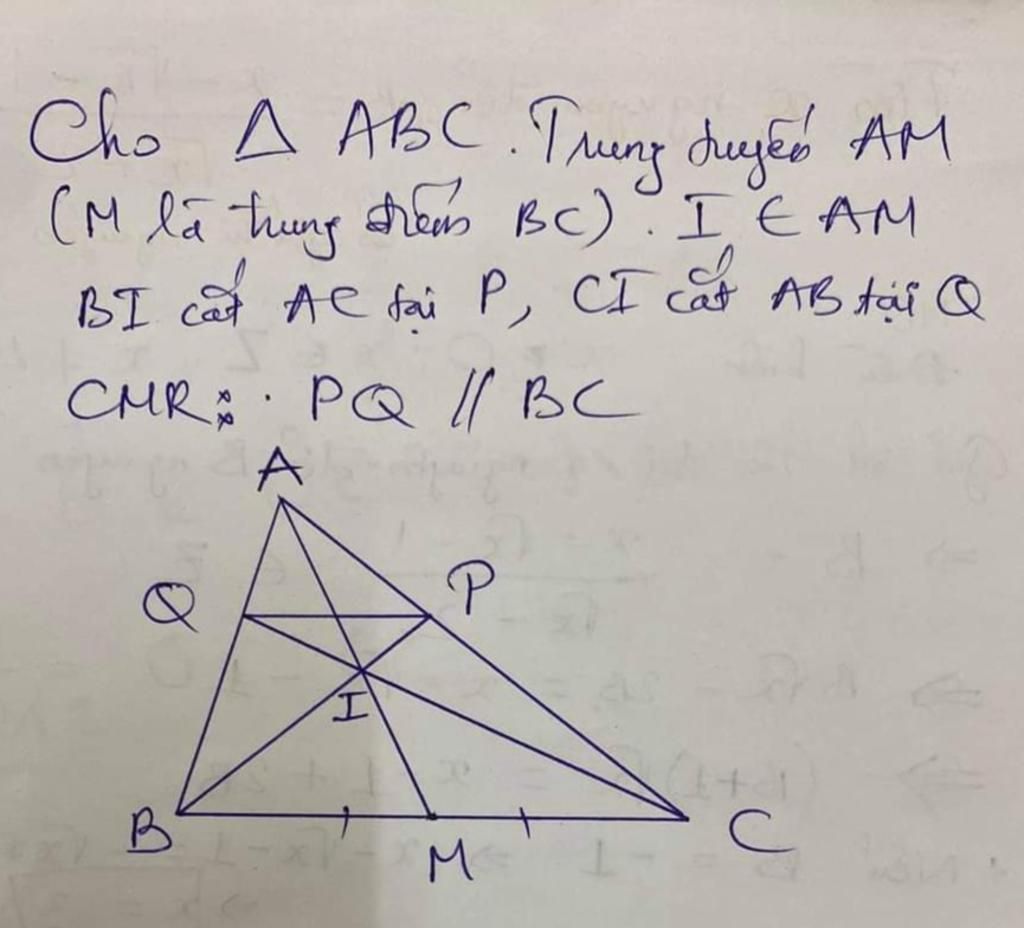 Cho Δ ABC. Trung tuyến AM
(M là trung điểm BC). I ∈ AM
BI cắt AC tại P, CI cắt AB tại Q
CMR: PQ // BC
A
Q P
I
B M C